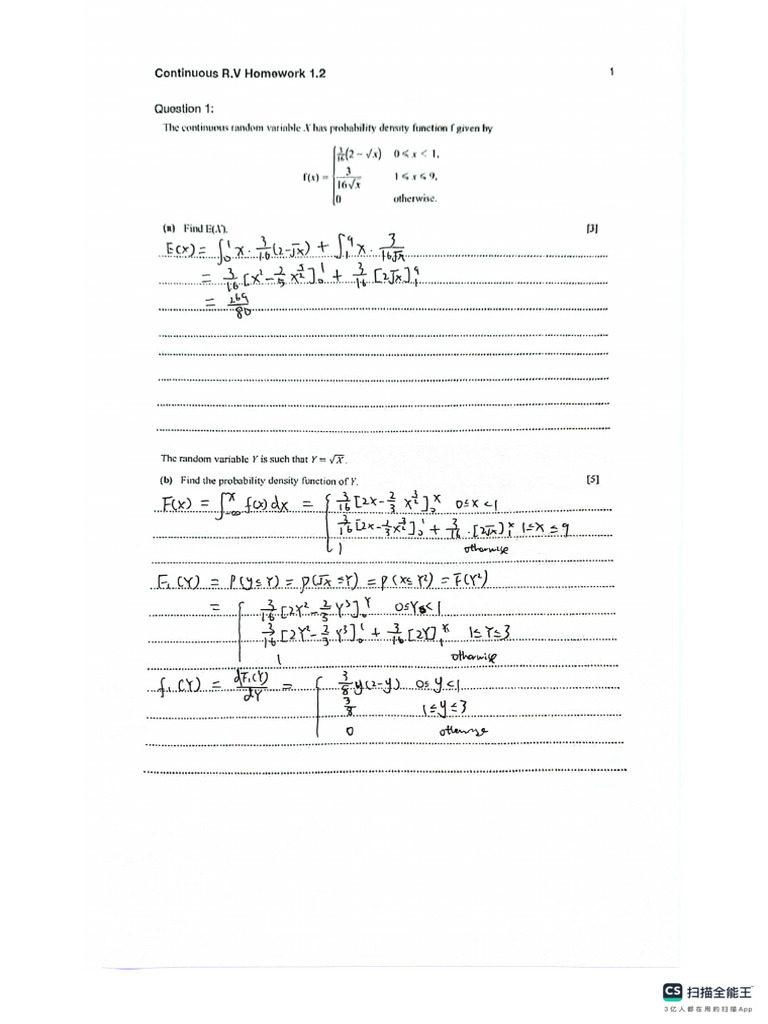 Continuous R.V Homework 1.2
1
Question 1:
The continuous random variable X has probability density function f given by
f(x) = { 3/16(2 − √x) 0 ⩽ x < 1,
3/(16√x) 1 ⩽ x ⩽ 9,
0 otherwise.
(a) Find E(X). [3]
E(x) = ∫₀¹ x · 3/16 (2-√x) + ∫₁⁹ x · 3/(16√x)
= 3/16 [x² - 2/5 x^(5/2)]₀¹ + 3/16 [2√x]₁⁹
= 269/80
The random variable Y is such that Y = √X.
(b) Find the probability density function of Y. [5]
F(x) = ∫_{-∞}^x f(x) dx = { 3/16 [2x - 2/3 x^(3/2)]₀ˣ 0≤x<1
3/16 [2x - 2/3 x^(3/2)]₀¹ + 3/16 · [2√x]₁ˣ 1≤x≤9
1 otherwise
F₁(Y) = P(y≤Y) = P(√x ≤Y) = P(x≤Y²) = F(Y²)
= { 3/16 [2Y² - 2/3 Y³]₀ʸ 0≤Y<1
3/16 [2Y² - 2/3 Y³]₀¹ + 3/16 [2Y]₁ˣ 1≤Y≤3
1 otherwise
f₁(Y) = dF₁(Y)/dY = { 3/8 y(2-y) 0≤y<1
3/8 1≤y≤3
0 otherwise
CS 扫描全能王
3亿人都在用的扫描App